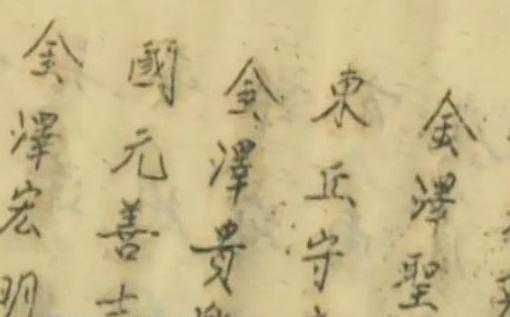 金澤聖
東丘守
金澤貴
國元善
金澤宏明